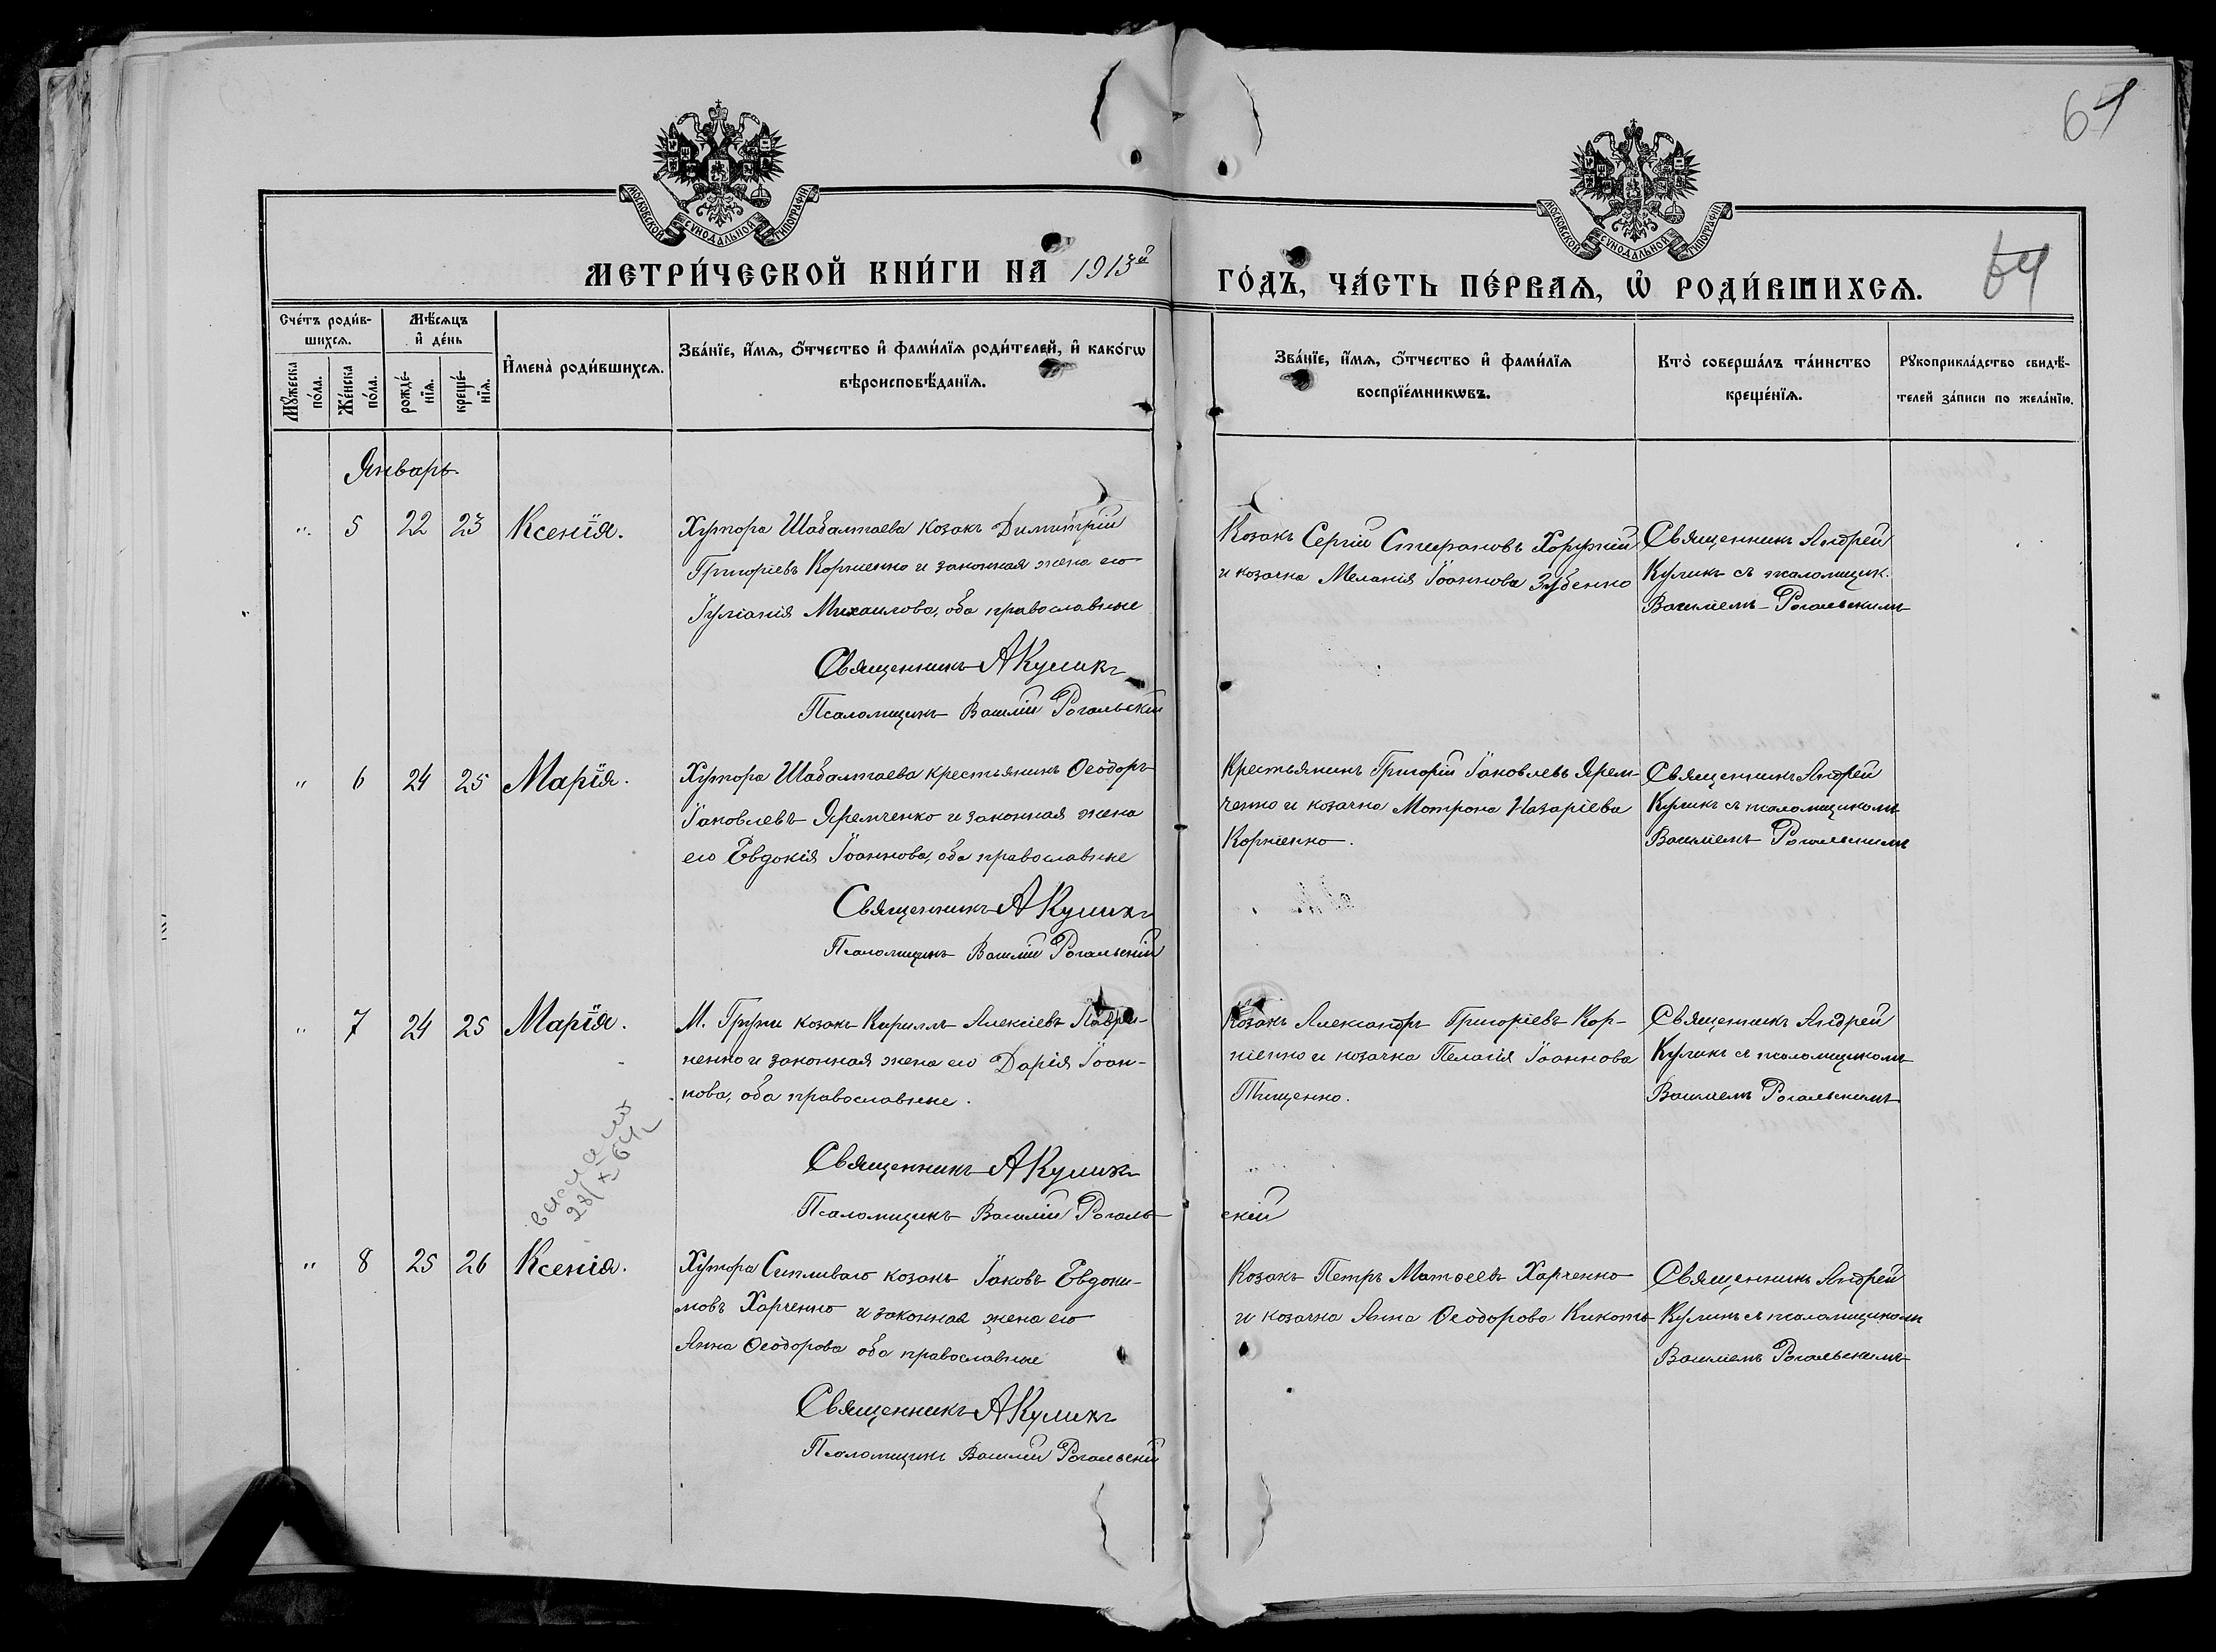 67
МОСКОВСКОЙ СѴНОДАЛЬНОЙ ТИПОГРАФІИ
МОСКОВСКОЙ СѴНОДАЛЬНОЙ ТИПОГРАФІИ
МЕТРИ́ЧЕСКОЙ КНИ́ГИ НА 1913й ГО́ДЪ, ЧА́СТЬ ПЕ́РВАѦ, Ѡ҆ РОДИ́ВШИХСѦ.
64
Сче́тъ роди́в-
шихсѧ.
Мꙋ́жеска по́ла.
Же́нска по́ла.
Мѣ́сѧцъ
и҆ де́нь
рожде́-нїѧ.
креще́-нїѧ.
И҆мена̀ роди́вшихсѧ.
Зва́нїе, и҆́мѧ, ѻ҆́тчество и҆ фами́лїѧ роди́телей, и҆ како́гѡ
вѣроисповѣ́данїѧ.
Зва́нїе, и҆́мѧ, ѻ҆́тчество и҆ фами́лїѧ
воспрїе́мникѡвъ.
Кто̀ соверша́лъ та́инство
креще́нїѧ.
Рꙋкоприкла́дство свидѣ́-
телей за́писи по жела́нїю.
Январь
" 5 22 23 Ксенія.
Хутора Шабалтаева козакъ Димитрій
Григоріевъ Корніенко и законная жена его
Іуліанія Михаилова, оба православные
Священникъ А Куликъ
Псаломщикъ Василій Рогальскій
Козакъ Сергій Стефановъ Хоружій
и козачка Меланія Іоаннова Зубенко
Священникъ Андрей
Куликъ съ псаломщик.
Василіемъ Рогальскимъ
" 6 24 25 Марія.
Хутора Шабалтаева крестьянинъ Ѳеодоръ
Іаковлевъ Яремченко и законная жена
его Евдокія Іоаннова, оба православные
Священникъ А Куликъ
Псаломщикъ Василій Рогальскій
Крестьянинъ Григорій Іаковлевъ Ярем-
ченко и козачка Мотрона Назаріева
Корніенко.
Священникъ Андрей
Куликъ съ псаломщикомъ
Василіемъ Рогальскимъ
" 7 24 25 Марія.
М. Груни козакъ Кириллъ Алексіевъ Лаври-
ненко и законная жена его Дарія Іоан-
нова, оба православные.
Священникъ А Куликъ
Псаломщикъ Василій Рогаль-
скій
Козакъ Александръ Григоріевъ Кор-
ніенко и козачка Пелагія Іоаннова
Тищенко.
Священникъ Андрей
Куликъ съ псаломщикомъ
Василіемъ Рогальскимъ
28/X 64
" 8 25 26 Ксенія.
Хутора Сипливаго козакъ Іаковъ Евдоки-
мовъ Харченко и законная жена его
Анна Ѳеодорова оба православные
Священникъ А Куликъ
Псаломщикъ Василій Рогальскій
Козакъ Петръ Матѳеевъ Харченко
и козачка Анна Ѳеодорова Кикоть
Священникъ Андрей
Куликъ съ псаломщикомъ
Василіемъ Рогальскимъ